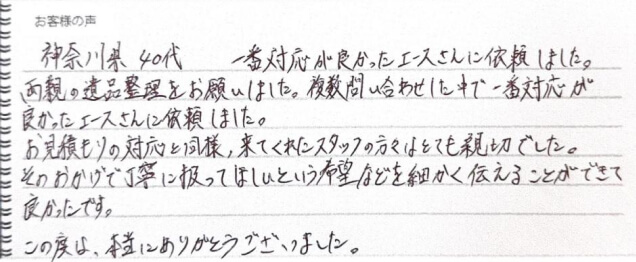 お客様の声
神奈川県 40代 一番対応が良かったエースさんに依頼しました。
両親の遺品整理をお願いしました。複数問い合わせした中で一番対応が
良かったエースさんに依頼しました。
お見積もりの対応と同様，来てくれたスタッフの方々はとても親切でした。
そのおかげで丁寧に扱ってほしいという希望などを細かく伝えることができて
良かったです。
この度は、本当にありがとうございました。